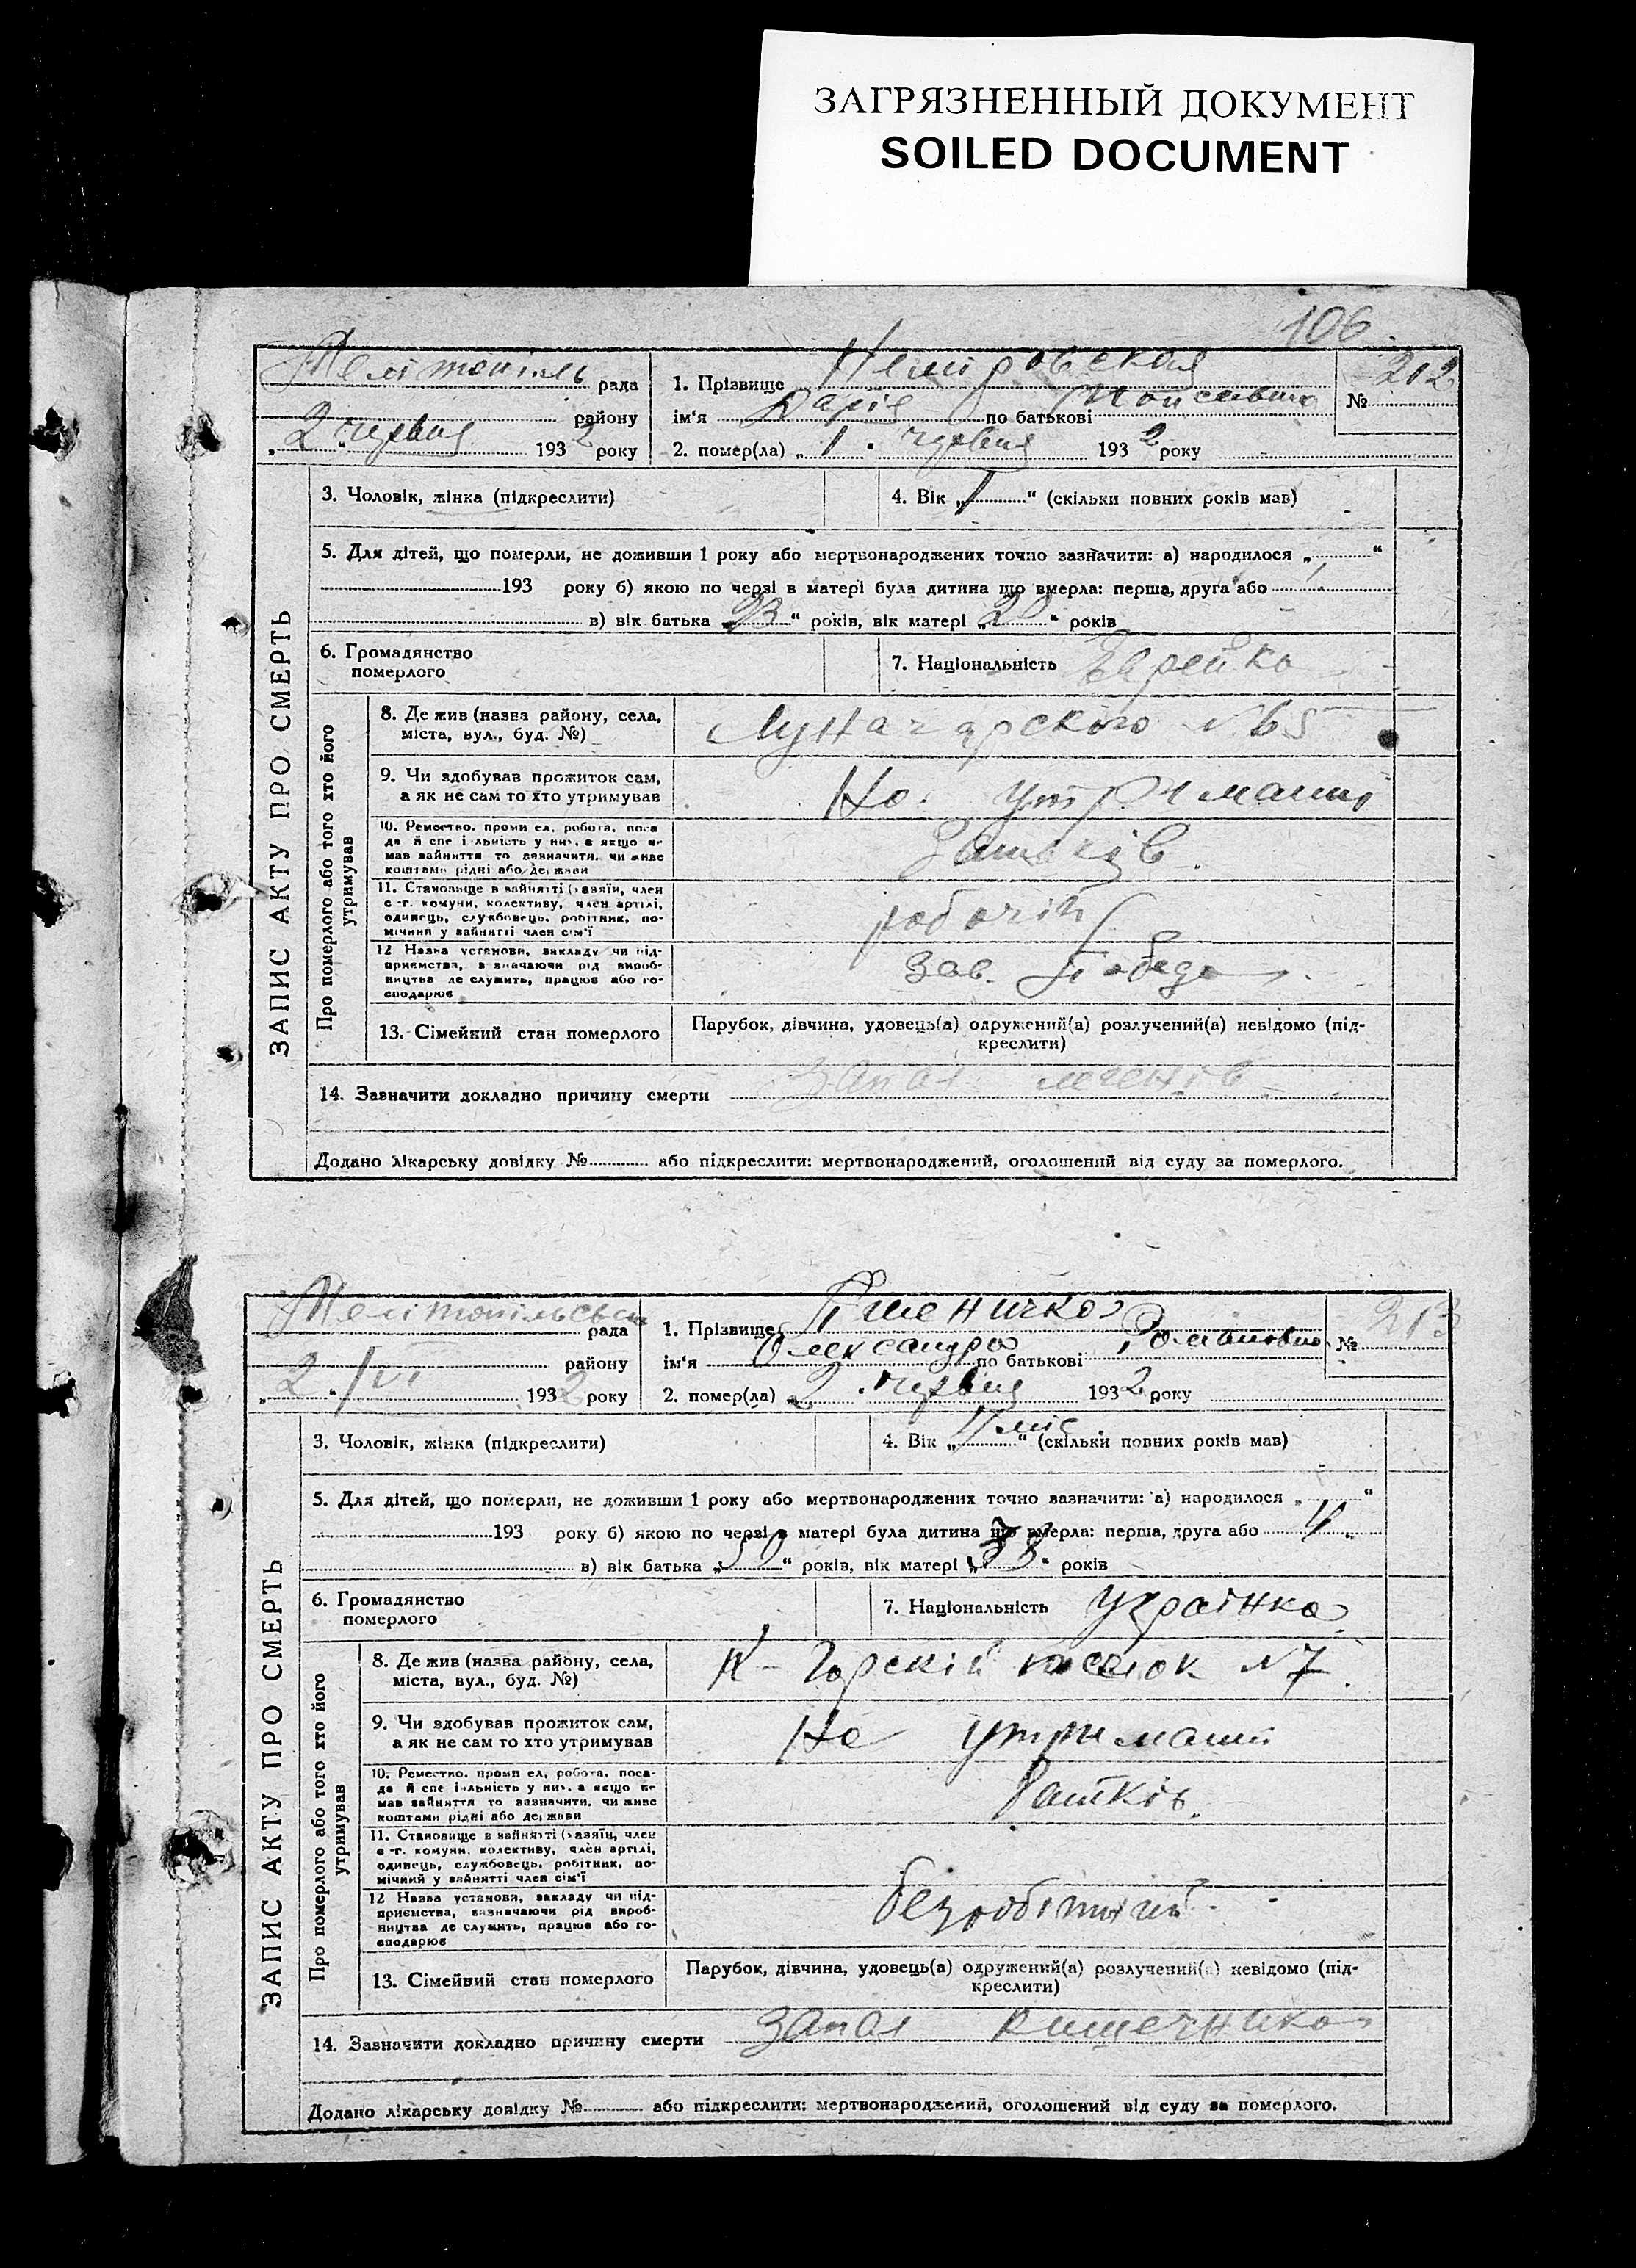 ЗАГРЯЗНЕННЫЙ ДОКУМЕНТ
SOILED DOCUMENT
106
Мелітопіль рада
району
„2" червня 1932 року
1. Прізвище Неміровская
ім'я Дарія по батькові
2. помер(ла) „1" червня 1932 року
№ 212
ЗАПИС АКТУ ПРО СМЕРТЬ
3. Чоловік, жінка (підкреслити)
4. Вік „1" (скільки повних років мав)
5. Для дітей, що померли, не доживши 1 року або мертвонароджених точно зазначити: а) народилося „ "
193 року б) якою по черзі в матері була дитина що вмерла: перша, друга або
в) вік батька „23" років, вік матері „ " років
6. Громадянство
померлого
7. Національність Еврейка
Про померлого або того хто його
утримував
8. Де жив (назва району, села,
міста, вул., буд. №)
Луначарского №65
9. Чи здобував прожиток сам,
а як не сам то хто утримував
На утриманні
10. Ремество, промисел, робота, поса-
да й спеціяльність у них, а якщо не
мав зайняття то зазначити, чи живе
коштами рідні або держави
Батьків
11. Становище в зайнятті (хазяїн, член
с.-г. комуни, колективу, член артілі,
одинець, службовець, робітник, по-
мічний у зайнятті член сім'ї
робочій
12 Назва установи, закладу чи під-
приємства, зазначаючи рід вироб-
ництва де служить, працює або го-
сподарює
Зав. Победа
13. Сімейний стан померлого
Парубок, дівчина, удовець(а) одружений(а) розлучений(а) невідомо (під-
креслити)
14. Зазначити докладно причину смерти запал легенів
Додано лікарську довідку № або підкреслити: мертвонароджений, оголошений від суду за померлого.
Мелітопільська рада
району
„2" /VI 1932 року
1. Прізвище Пшеничка
ім'я Олександра по батькові Романовна
2. помер(ла) „2" червня 1932 року
№ 213
ЗАПИС АКТУ ПРО СМЕРТЬ
3. Чоловік, жінка (підкреслити)
4. Вік „ міс." (скільки повних років мав)
5. Для дітей, що померли, не доживши 1 року або мертвонароджених точно зазначити: а) народилося „ "
193 року б) якою по черзі в матері була дитина що вмерла: перша, друга або 4
в) вік батька „50" років, вік матері „38" років
6. Громадянство
померлого
7. Національність Українка
Про померлого або того хто його
утримував
8. Де жив (назва району, села,
міста, вул., буд. №)
Н-Горскій поселок №7
9. Чи здобував прожиток сам,
а як не сам то хто утримував
На утриманні
10. Ремество, промисел, робота, поса-
да й спеціяльність у них, а якщо не
мав зайняття то зазначити, чи живе
коштами рідні або держави
Батьків.
11. Становище в зайнятті (хазяїн, член
с.-г. комуни, колективу, член артілі,
одинець, службовець, робітник, по-
мічний у зайнятті член сім'ї
12 Назва установи, закладу чи під-
приємства, зазначаючи рід вироб-
ництва де служить, працює або го-
сподарює
безробітний
13. Сімейний стан померлого
Парубок, дівчина, удовець(а) одружений(а) розлучений(а) невідомо (під-
креслити)
14. Зазначити докладно причину смерти запал кишечника
Додано лікарську довідку № або підкреслити: мертвонароджений, оголошений від суду за померлого.